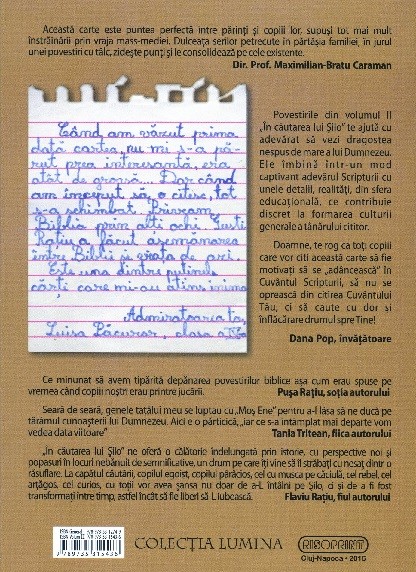 Această carte este puntea perfectă între părinți și copiii lor, supuși tot mai mult
înstrăinării prin vraja mass-mediei. Dulceața serilor petrecute în părtășia familiei, în jurul
unei povestiri cu tâlc, zidește punți și le consolidează pe cele existente.
Dir. Prof. Maximilian-Bratu Caraman
Când am văzut prima
dată cartea, nu mi s-a pă-
rut prea interesantă, era
atât de groasă. Dar când
am început să o citesc, tot
s-a schimbat. Priveam
Biblia prin alți ochi. Iusti
Rațiu a făcut asemănarea
între Biblie și viața de aci.
Este una dintre puținele
cărți care mi-au atins inima
Admiratoarea ta,
Luisa Lăcurar, clasa a IV-a
Povestirile din volumul II
„În căutarea lui Șilo" te ajută cu
adevărat să vezi dragostea
nespus de mare a lui Dumnezeu.
Ele îmbină într-un mod
captivant adevărul Scripturii cu
unele detalii, realități, din sfera
educațională, ce contribuie
discret la formarea culturii
generale a tânărului cititor.
Doamne, te rog ca toți copiii
care vor citi această carte să fie
motivați să se „adâncească" în
Cuvântul Scripturii, să nu se
oprească din citirea Cuvântului
Tău, ci să caute cu dor și
înflăcărare drumul spre Tine!
Dana Pop, învățătoare
Ce minunat să avem tipărită depănarea povestirilor biblice așa cum erau spuse pe
vremea când copiii noștri erau printre jucării.
Pușa Rațiu, soția autorului
Seară de seară, genele tatălui meu se luptau cu „Moș Ene" pentru a-l lăsa să ne ducă pe
tărâmul cunoașterii lui Dumnezeu. Aici e o părticică, „iar ce s-a întâmplat mai departe vom
vedea data viitoare"
Tania Tritean, fiica autorului
„În căutarea lui Șilo" ne oferă o călătorie îndelungată prin istorie, cu perspective noi și
popasuri în locuri nebănuit de semnificative, un drum pe care îți vine să îl străbați cu nesaț dintr-o
răsuflare. La capătul căutării, copilul egoist, copilul părăcios, cel cu musca pe căciulă, cel rebel, cel
arțăgos, cel curios, cu toții vor avea șansa nu doar de a-L întâlni pe Șilo, ci și de a fi fost
transformați între timp, astfel încât să fie liberi să-L iubească.
Flaviu Rațiu, fiul autorului
COLECȚIA LUMINA
RISOPRINT
Cluj-Napoca • 2016